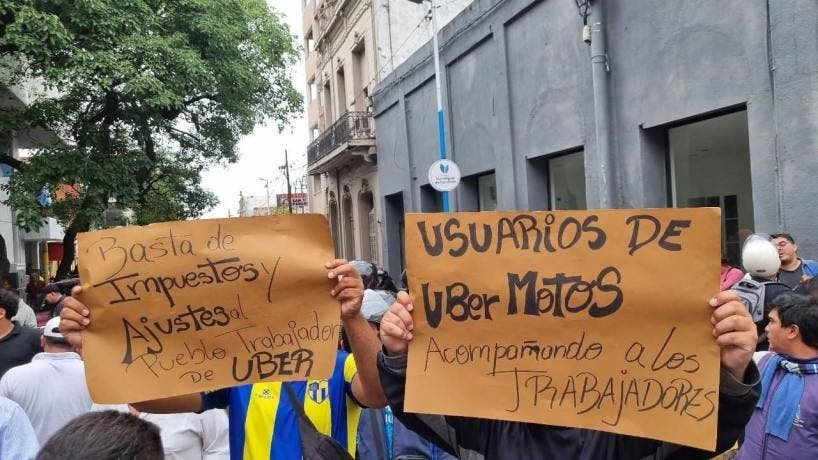 Basta de
Impuestos y
Ajustes al
Pueblo Trabajador
de UBER
USUARIOS DE
UBer MOTOS
Acompañando a los
TRABAJADORES